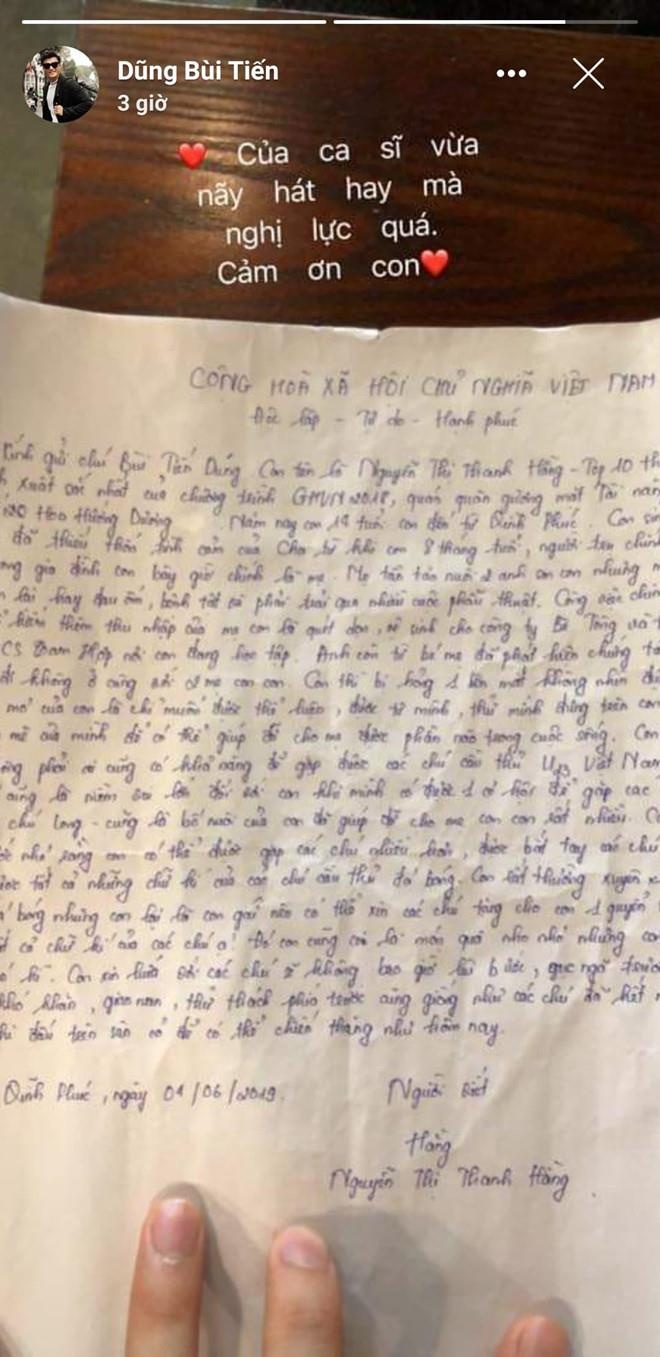 Dũng Bùi Tiến
3 giờ
Của ca sĩ vừa
nãy hát hay mà
nghị lực quá.
Cảm ơn con
CỘNG HOÀ XÃ HỘI CHỦ NGHĨA VIỆT NAM
Độc lập - Tự do - Hạnh phúc
Kính gửi chú Bùi Tiến Dũng. Con tên là Nguyễn Thị Thanh Hằng - Top 10
xuất sắc nhất của chương trình GMVN 2018, quán quân gương mặt Tài năng
Theo Thương Dương. Năm nay con 14 tuổi con đến từ Vĩnh Phúc. Con sinh
đã thiếu thốn tình cảm của Cha từ khi con 8 tháng tuổi, người trụ chính
gia đình con bây giờ chính là mẹ. Mẹ tần tảo nuôi 2 anh em con nhưng
lại hay đau ốm, bệnh tật và phải trải qua nhiều cuộc phẫu thuật. Công việc chính
kiếm thêm thu nhập của mẹ con là quét dọn, vệ sinh cho công ty Bê Tông và
CS Đam Hợp nơi con đang học tập. Anh con từ bé mẹ đã phát hiện chứng
không ở cùng với 2 mẹ con con. Con thì bị hỏng 1 bên mắt không nhìn
mơ của con là chỉ muốn được thử, được tự mình, thử mình đứng trên
mê của mình để có thể giúp đỡ cho mẹ được phần nào trong cuộc sống. Con
phải ai cũng có khả năng để gặp được các chú cầu thủ U23 Việt Nam
cũng là niềm vui lớn đối với con khi mình có được 1 cơ hội để gặp các
chú Long - cũng là bố nuôi của con đã giúp đỡ cho mẹ con con rất nhiều.
nhỏ rằng con có thể được gặp các chú nhiều hơn, được bắt tay các chú
được tất cả những chữ kí của các chú cầu thủ đá bóng. Con rất thường xuyên
bóng nhưng con lại là con gái nên có thể xin các chú tặng cho con 1 quyển
cả chữ kí của các chú ạ! Đó con cũng coi là món quà nho nhỏ nhưng
Con xin hứa với các chú sẽ không bao giờ lùi bước, gục ngã trước
khó khăn, gian nan, thử thách phía trước cũng giống như các chú đã hết
thi đấu trên sân cỏ để có thể chiến thắng như hôm nay.
Vĩnh Phúc, ngày 04/06/2019.
Người viết
Hằng
Nguyễn Thị Thanh Hằng